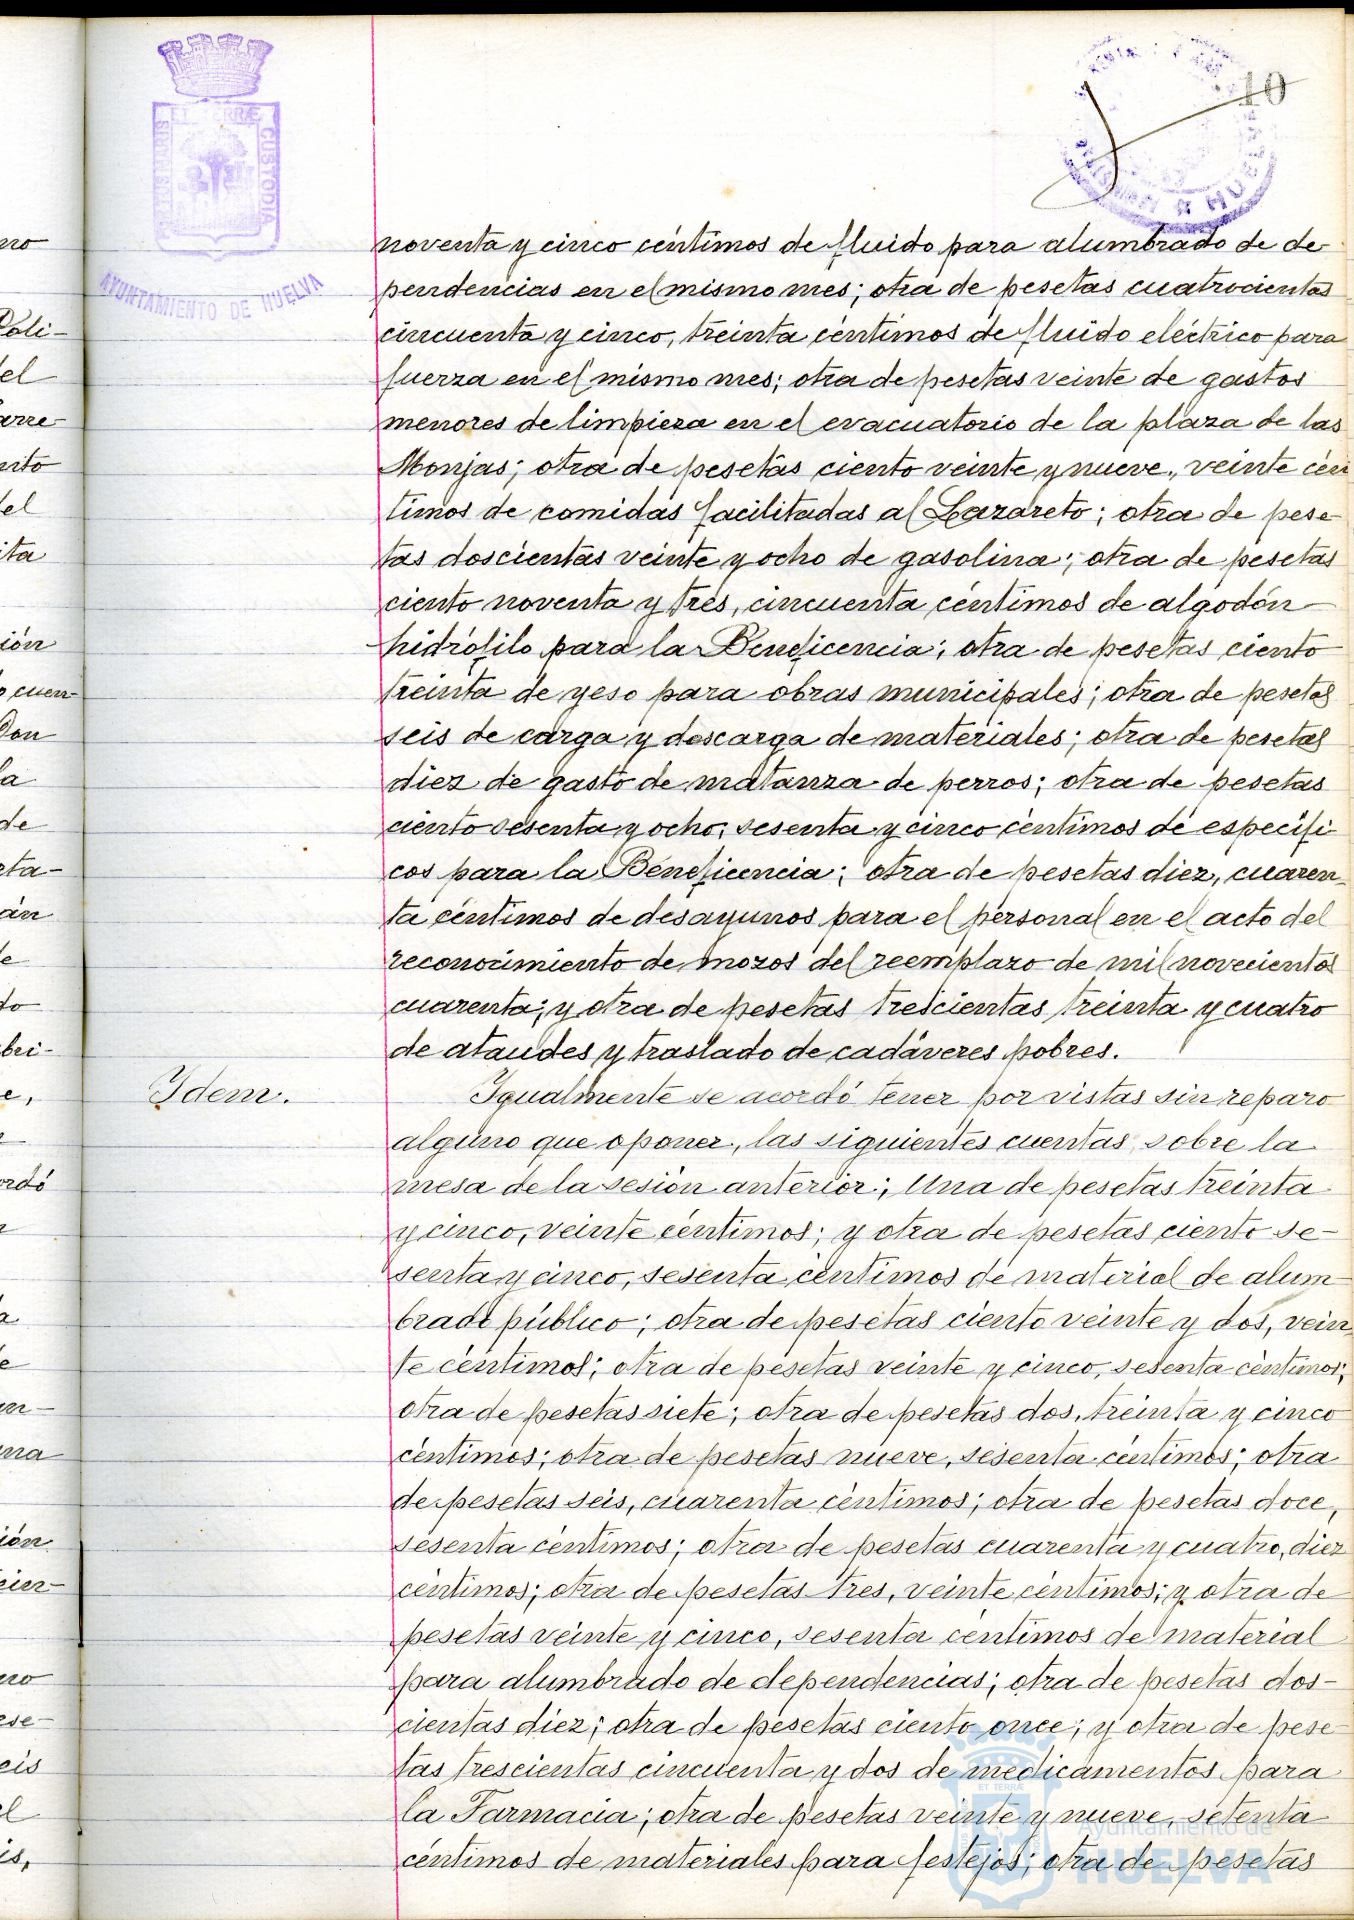 10
PORTUS MARIS ET TERRÆ CUSTODIA
AYUNTAMIENTO DE HUELVA
HUELVA
noventa y cinco céntimos de fluido para alumbrado de de-
pendencias en el mismo mes; otra de pesetas cuatrocientas
cincuenta y cinco, treinta céntimos de fluido eléctrico para
fuerza en el mismo mes; otra de pesetas veinte de gastos
menores de limpieza en el evacuatorio de la plaza de las
Monjas; otra de pesetas ciento veinte y nueve, veinte cén
timos de comidas facilitadas al Lazareto; otra de pese-
tas doscientas veinte y ocho de gasolina; otra de pesetas
ciento noventa y tres, cincuenta céntimos de algodón
hidrófilo para la Beneficencia; otra de pesetas ciento
treinta de yeso para obras municipales; otra de pesetas
seis de carga y descarga de materiales; otra de pesetas
diez de gasto de matanza de perros; otra de pesetas
ciento sesenta y ocho, sesenta y cinco céntimos de específi
cos para la Beneficencia; otra de pesetas diez, cuaren-
ta céntimos de desayunos para el personal en el acto del
reconocimiento de mozos del reemplazo de mil novecientos
cuarenta; y otra de pesetas trescientas treinta y cuatro
de ataudes y traslado de cadáveres pobres.
Ydem.
Igualmente se acordó tener por vistas sin reparo
alguno que oponer, las siguientes cuentas sobre la
mesa de la sesión anterior: Una de pesetas treinta
y cinco, veinte céntimos; y otra de pesetas ciento se-
senta y cinco, sesenta céntimos de material de alum-
brado público; otra de pesetas ciento veinte y dos, vein
te céntimos; otra de pesetas veinte y cinco, sesenta céntimos;
otra de pesetas siete; otra de pesetas dos, treinta y cinco
céntimos; otra de pesetas nueve, sesenta céntimos; otra
de pesetas seis, cuarenta céntimos; otra de pesetas doce,
sesenta céntimos; otra de pesetas cuarenta y cuatro, diez
céntimos; otra de pesetas tres, veinte céntimos; y otra de
pesetas veinte y cinco, sesenta céntimos de material
para alumbrado de dependencias; otra de pesetas dos-
cientas diez; otra de pesetas ciento once; y otra de pese
tas trescientas cincuenta y dos de medicamentos para
la Farmacia; otra de pesetas veinte y nueve, setenta
céntimos de materiales para festejos; otra de pesetas
Ayuntamiento de
HUELVA